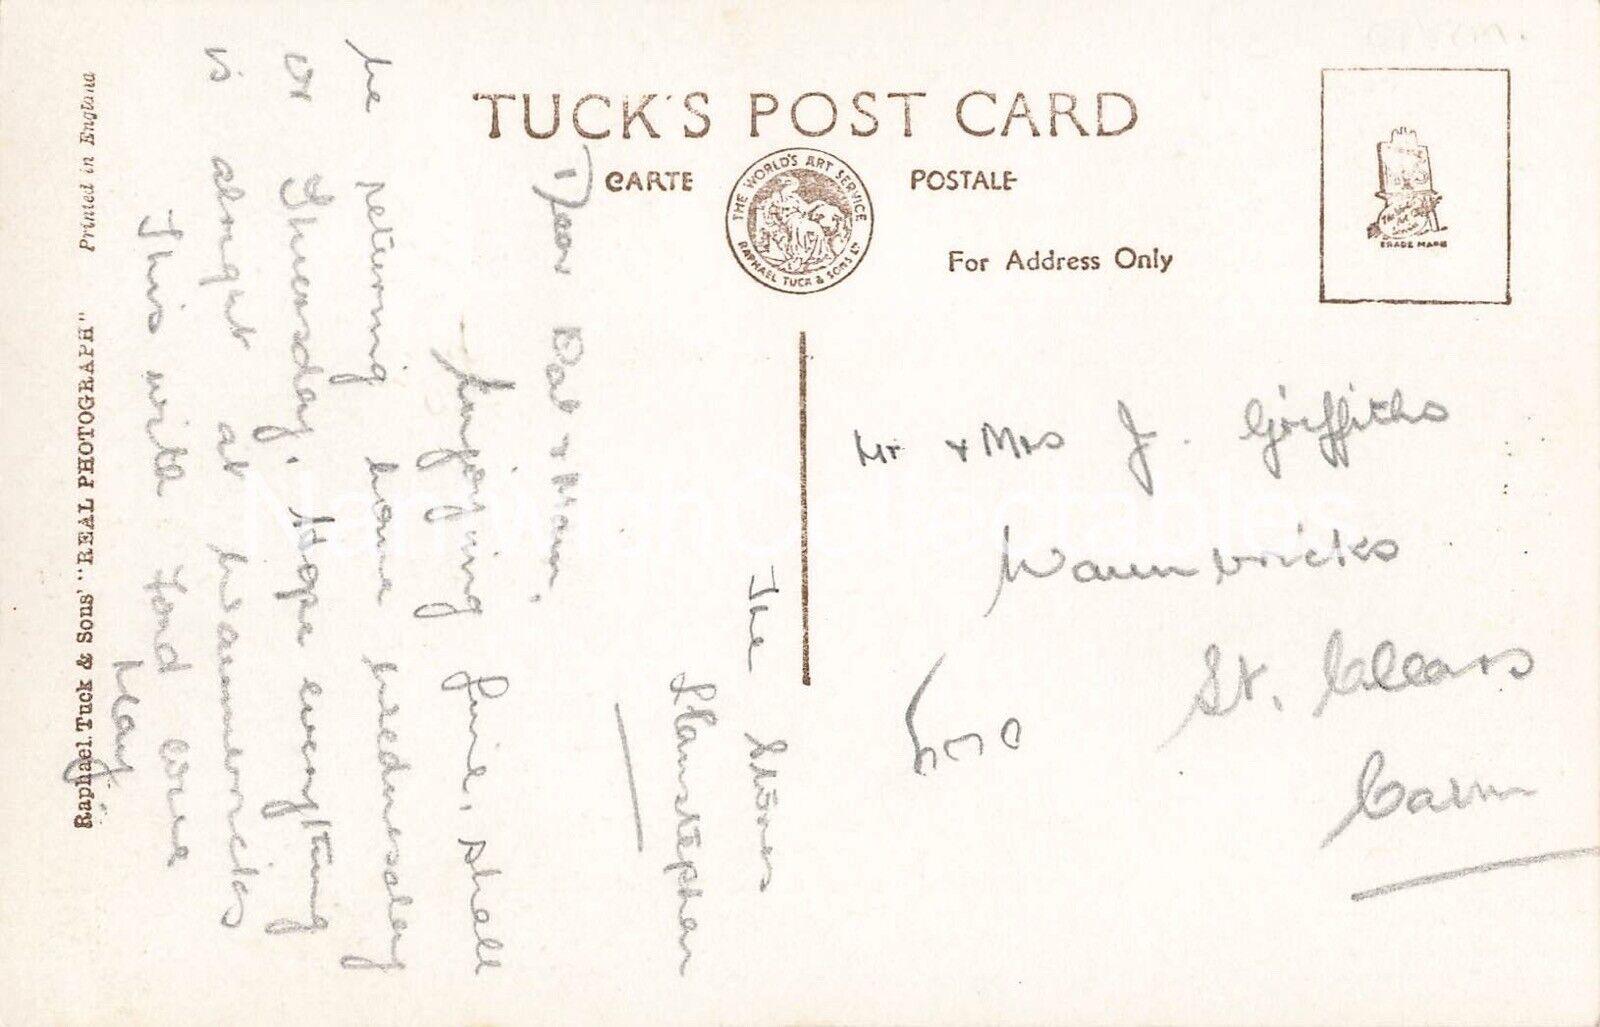 TUCK'S POST CARD
CARTE POSTALE
THE WORLD'S ART SERVICE
RAPHAEL TUCK & SONS LTD
For Address Only
TRADE MARK
Raphael Tuck & Sons' "REAL PHOTOGRAPH" Printed in England
The Stores
Llanstephan
Dear Dat & Mam,
Enjoying fine, shall
be returning home Wednesday
or Thuesday. Hope everything
is alright at Waunbricks
This with fond love
May
Mr & Mrs J. Griffiths
Waunbricks
St. Clears
Carm
NantwichCollectables